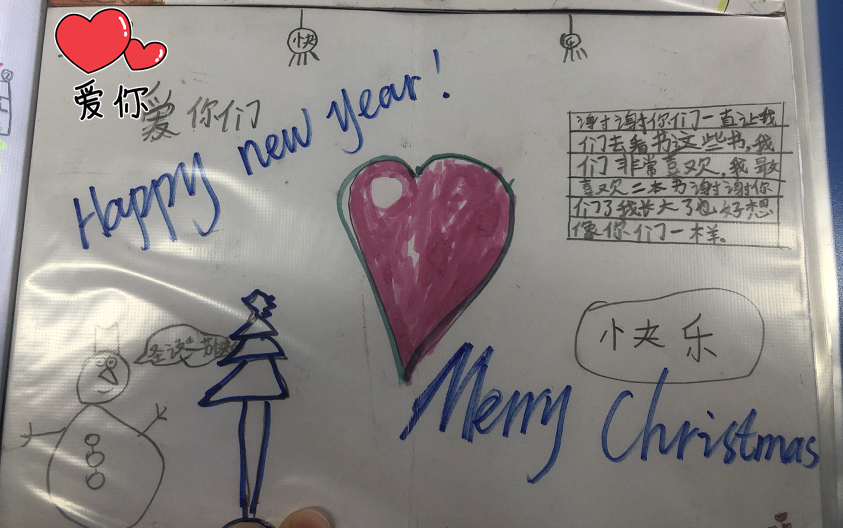 快
乐
爱你
爱你们
Happy new year!
谢谢你们一直让我
们去看书这些书,我
们非常喜欢,我最
喜欢二本书谢谢你
们了我长大了也好想
像你们一样。
圣诞节
快乐
Merry Christmas